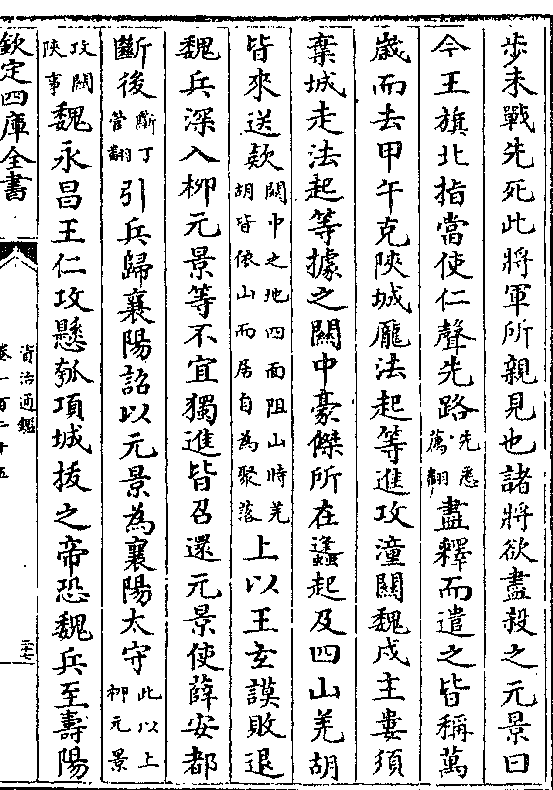 步未戰先死此將軍所親見也諸將欲盡殺之元景曰
今王旗北指當使仁聲先路先悉薦翻盡釋而遣之皆稱萬
歲而去甲午克陝城龐法起等進攻潼關魏戍主婁須
棄城走法起等據之關中豪傑所在蠭起及四山羌胡
皆來送欵關中之地四面阻山時羌胡皆依山而居自為聚落上以王玄謨敗退
魏兵深入柳元景等不宜獨進皆召還元景使薛安都
斷後斷丁管翻引兵歸襄陽詔以元景為襄陽太守此以上柳元景
攻關陝事魏永昌王仁攻懸瓠項城拔之帝恐魏兵至壽陽
欽定四庫全書
資治通鑑
卷一百二十五
二十七